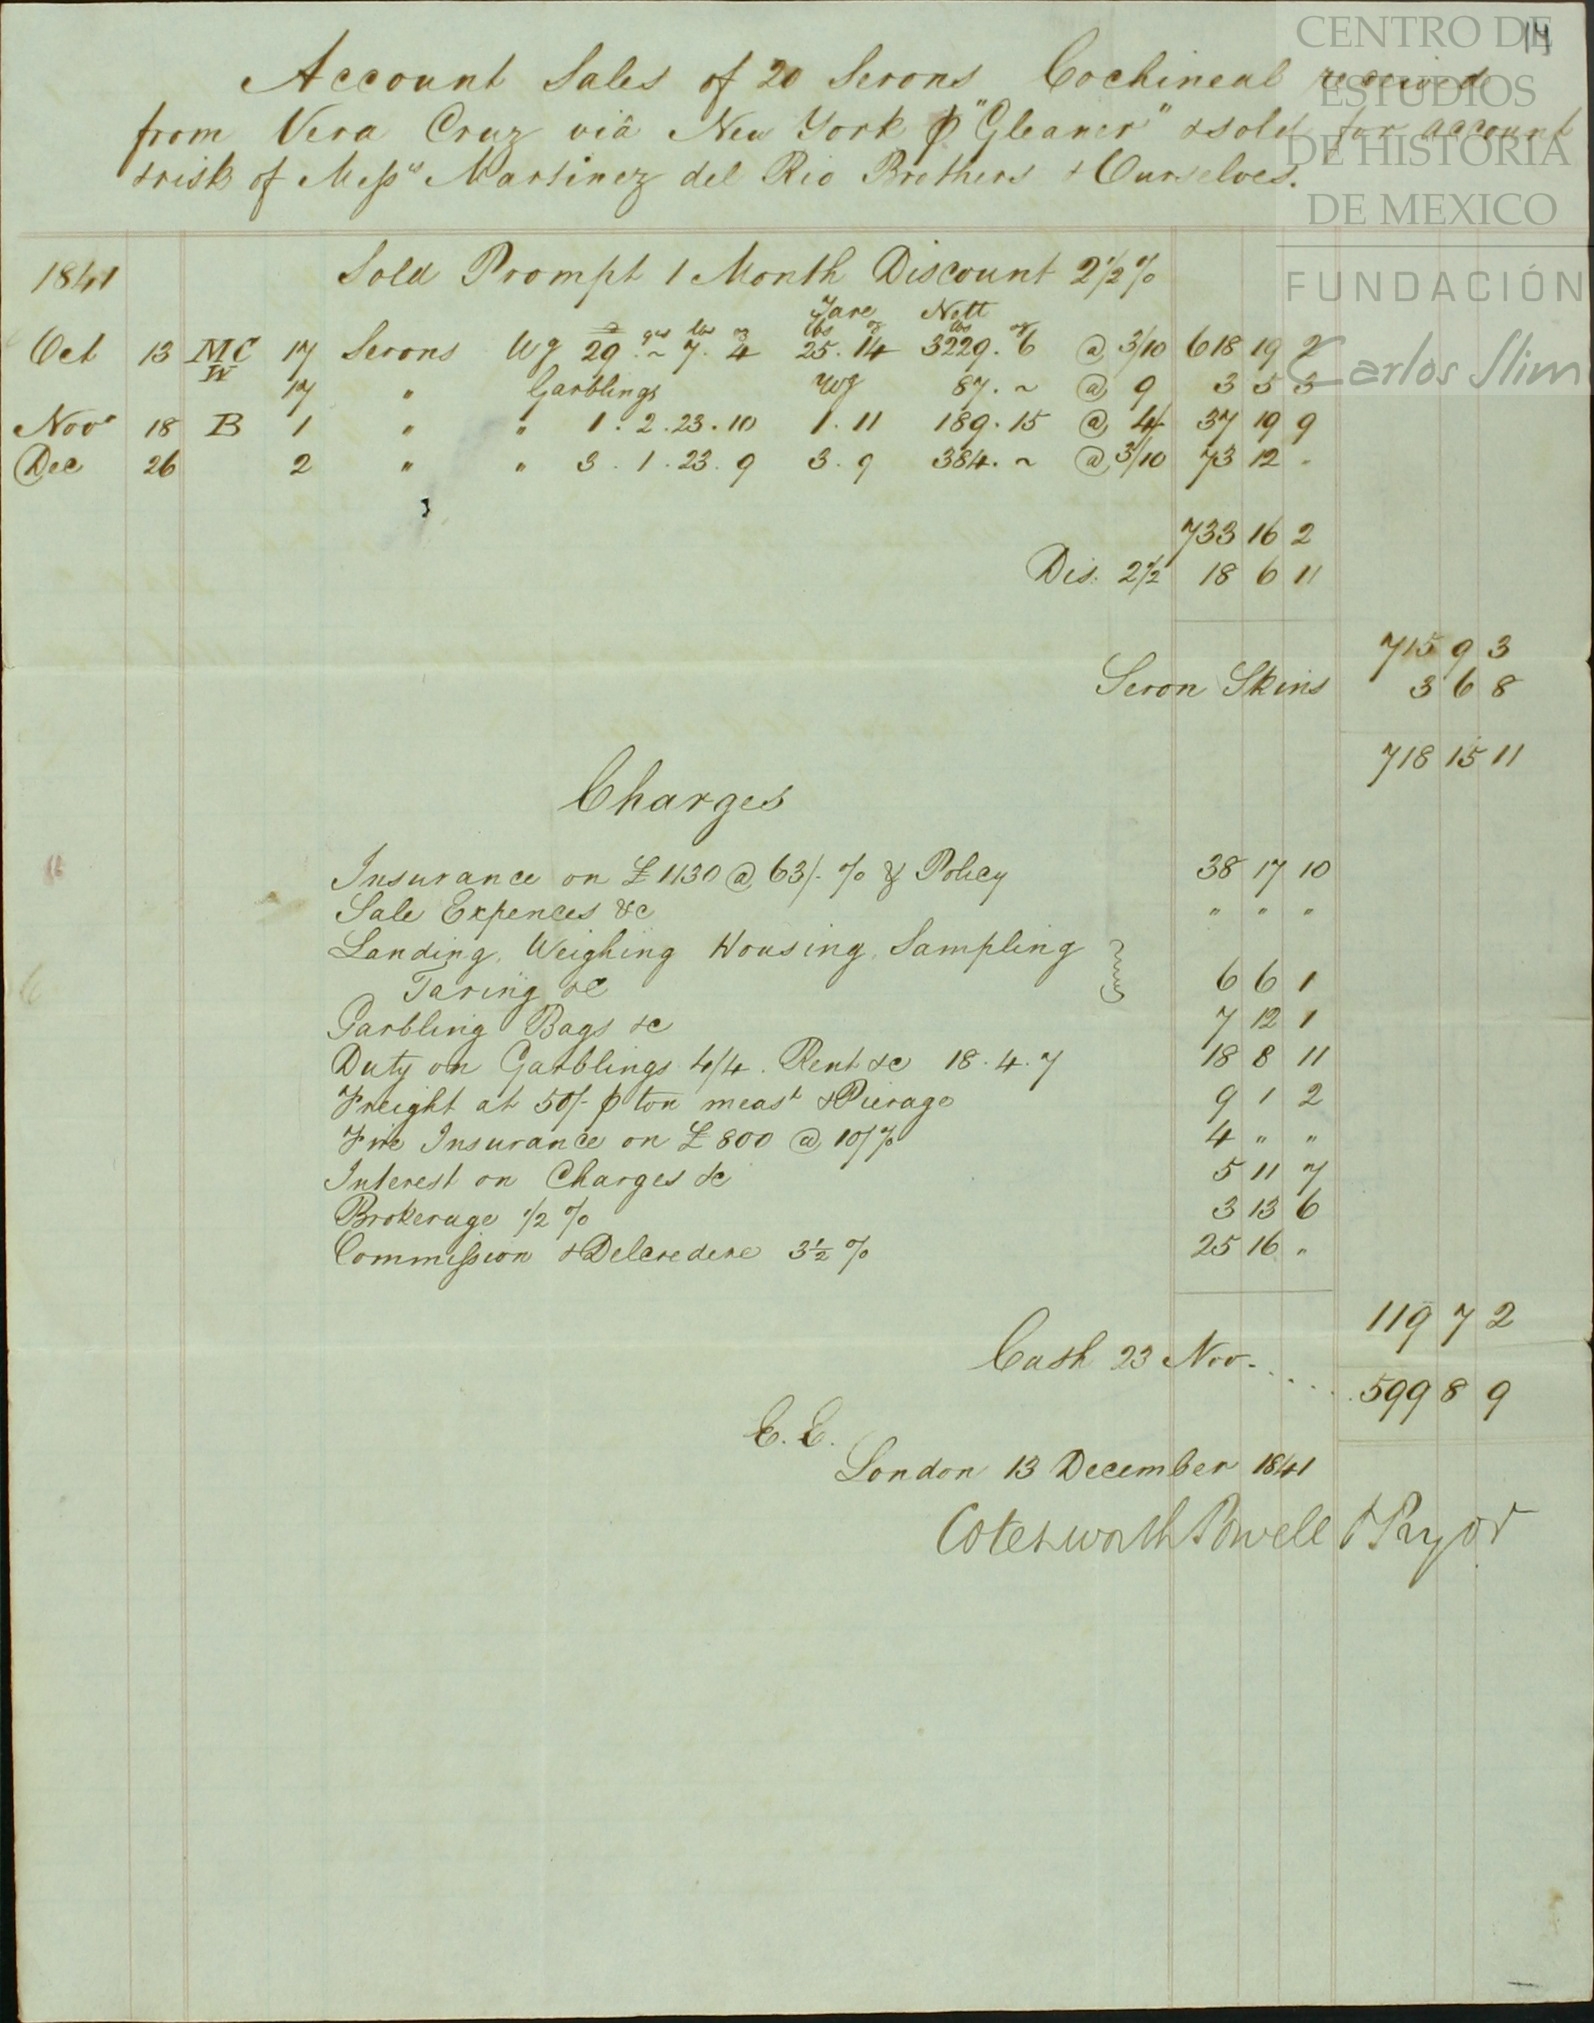 14
CENTRO DE
ESTUDIOS
DE HISTORIA
DE MEXICO
FUNDACIÓN
Carlos Slim
Account Sales of 20 Serons Cochineal received
from Vera Cruz viâ New York ⅌ "Gleaner" & sold for account
& risk of Messrs Martinez del Rio Brothers & Ourselves.
1841 Sold Prompt 1 Month Discount 2½%
Tare Nett
qrs lbs oz lbs oz lbs oz
Oct 13 MC 17 Serons Wg 29 . ~ 7 . 4 25 . 14 3229 . 6 @ 3/10 618 19 2
W
17 " Garblings Wg 87 . ~ @ 9 3 5 3
Novr 18 B 1 " " 1 . 2 . 23 . 10 1 . 11 189 . 15 @ 4/ 37 19 9
Dec 26 2 " " 3 . 1 . 23 . 9 3 . 9 384 . ~ @ 3/10 73 12 "
733 16 2
Dis. 2½ 18 6 11
715 9 3
Seron Skins 3 6 8
718 15 11
Charges
Insurance on £1130 @ 63/- % & Policy 38 17 10
Sale Expences &c " " "
Landing, Weighing Housing, Sampling
Taring &c 6 6 1
Garbling Bags &c 7 12 1
Duty on Garblings 4/4. Rent &c 18 . 4 . 7 18 8 11
Freight at 50/- ⅌ ton meast & Pierage 9 1 2
Fire Insurance on £800 @ 10/% 4 " "
Interest on Charges &c 5 11 7
Brokerage ½ % 3 13 6
Commission & Delcredere 3½ % 25 16 "
119 7 2
Cash 23 Nov. . . . . 599 8 9
E. E.
London 13 December 1841
Cotesworth Powell & Pryor